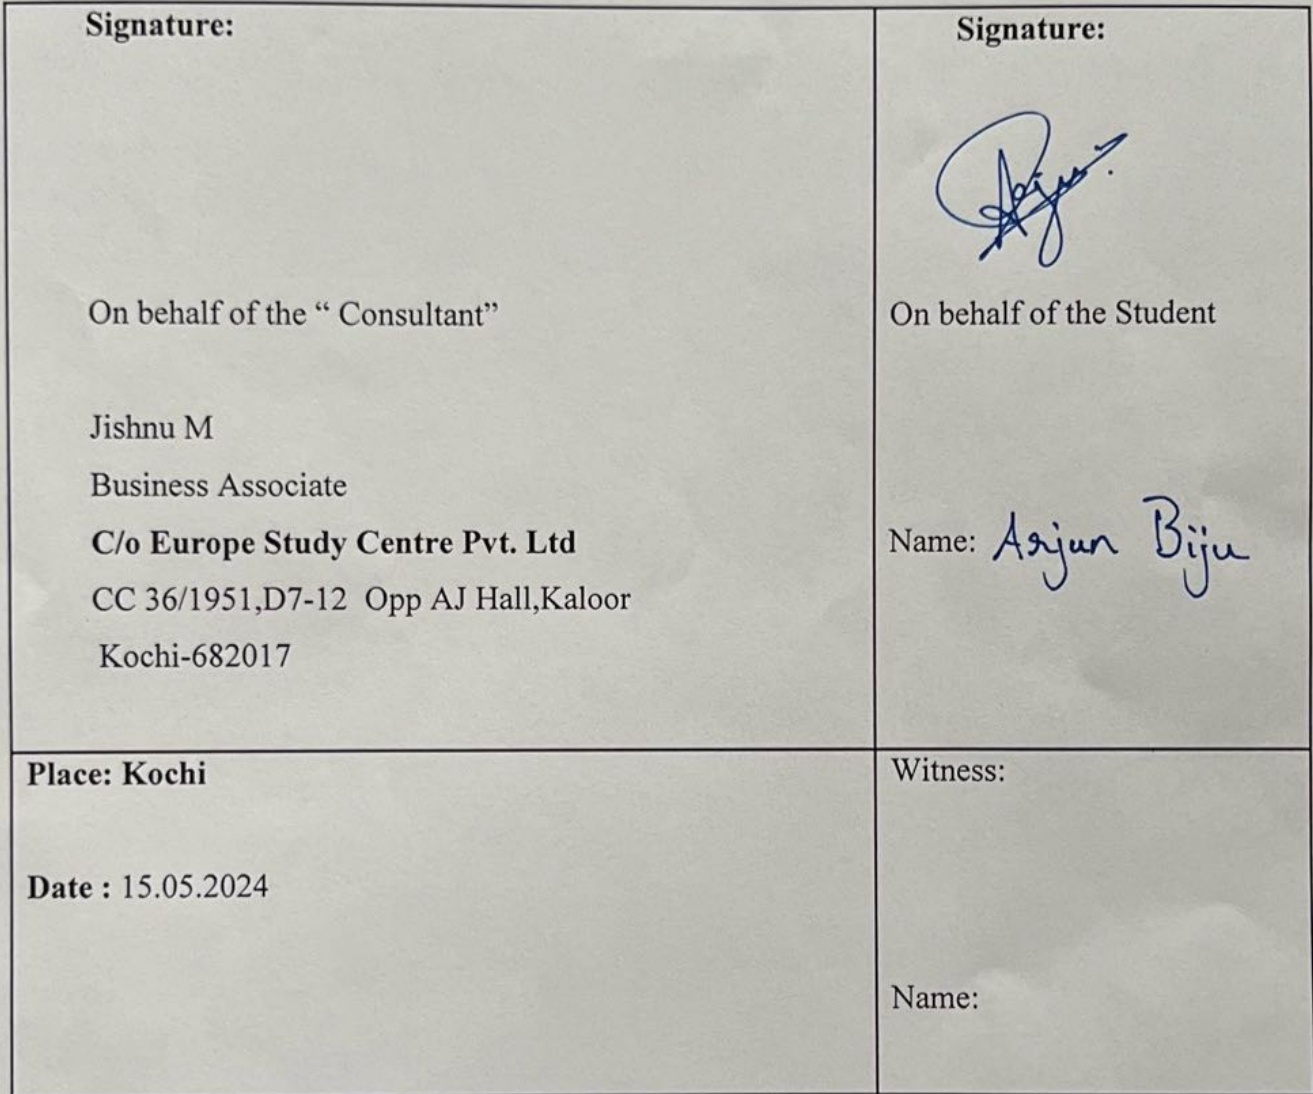 Signature:
On behalf of the “ Consultant”
Jishnu M
Business Associate
C/o Europe Study Centre Pvt. Ltd
CC 36/1951,D7-12 Opp AJ Hall,Kaloor
Kochi-682017
Signature:
On behalf of the Student
Name: Arjun Biju
Place: Kochi
Date : 15.05.2024
Witness:
Name: